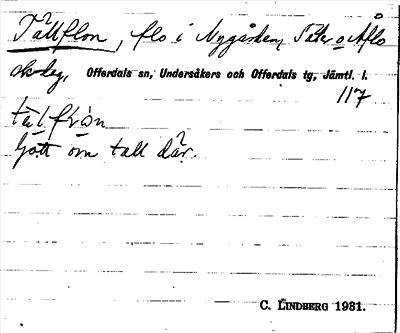 Tållflon, flo i Nygården, Säter o Åflo
skoleg, Offerdals sn, Undersåkers och Offerdals tg, Jämtl. l.
117
Gott om tall där.
C. LINDBERG 1931.